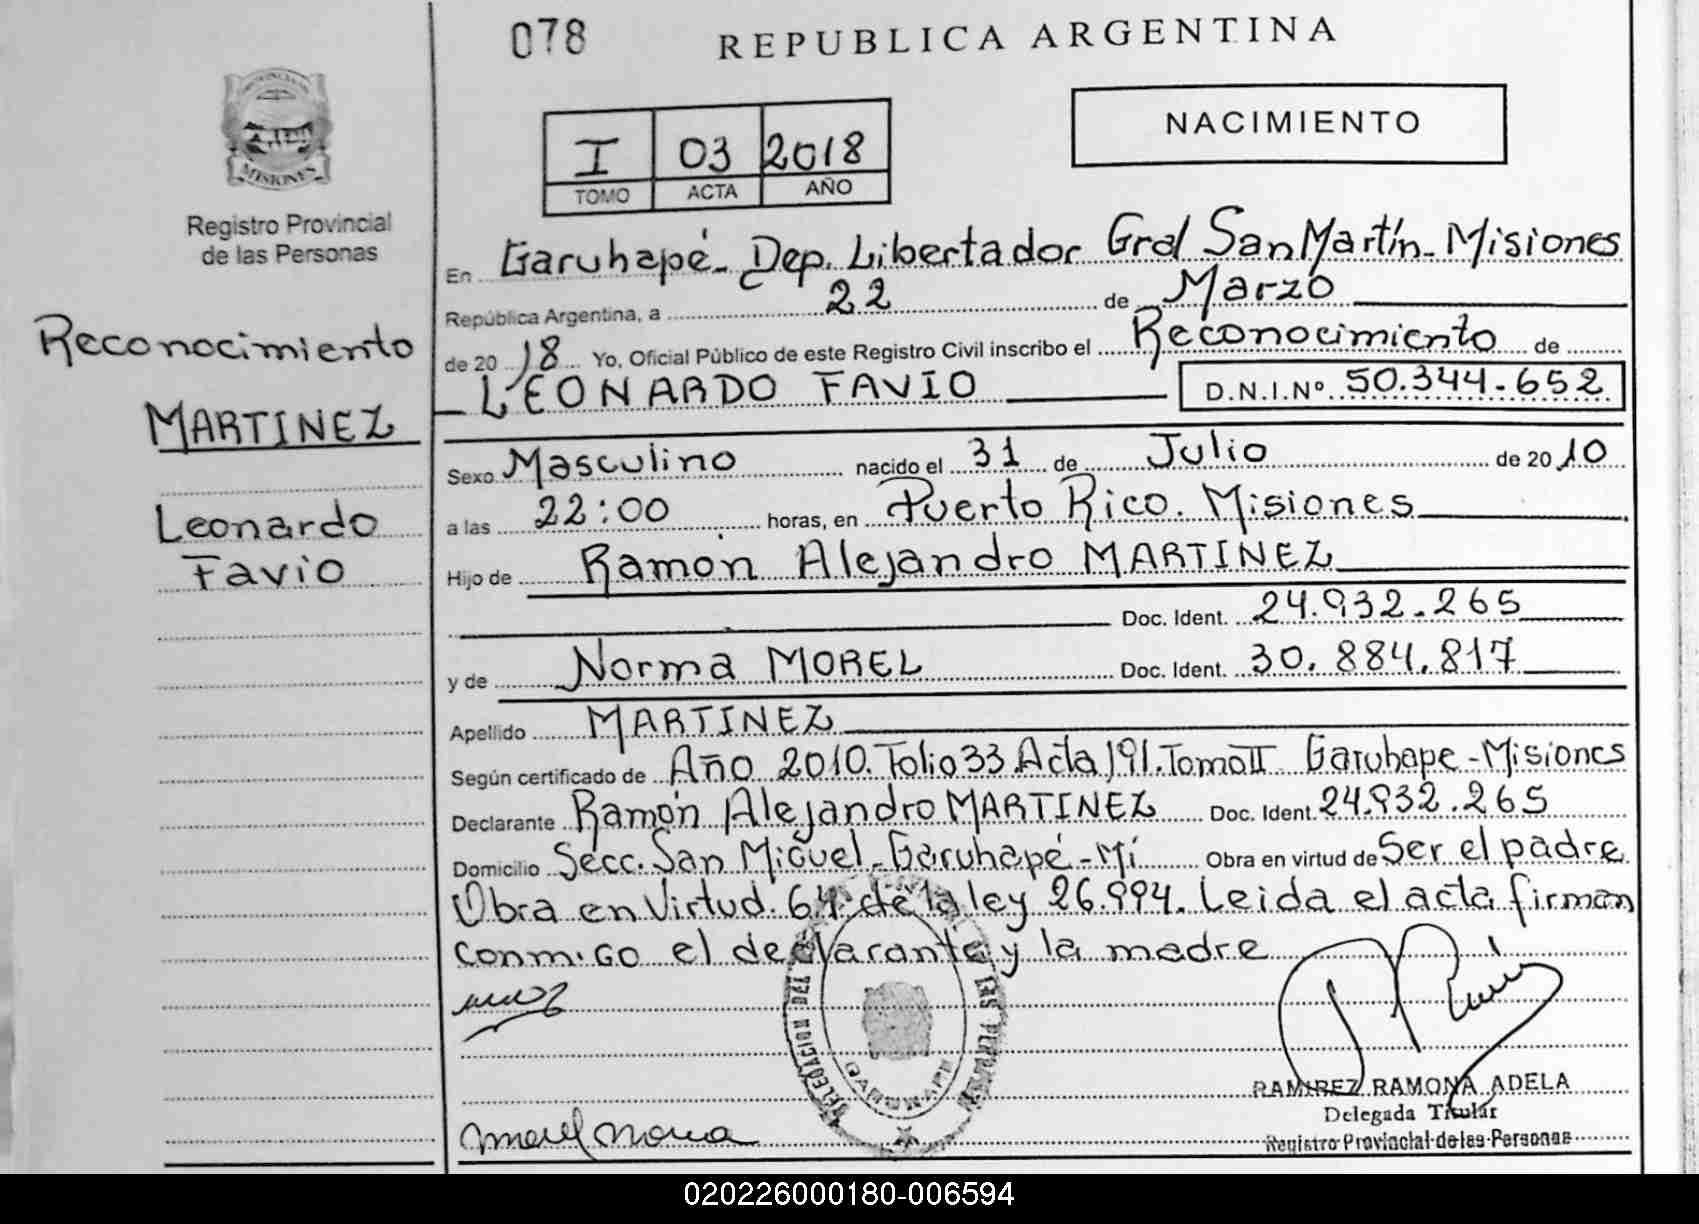 078
REPUBLICA ARGENTINA
NACIMIENTO
I 03 2018
TOMO ACTA AÑO
MISIONES
Registro Provincial
de las Personas
Reconocimiento
MARTINEZ
Leonardo
Favio
En Garuhapé- Dep. Libertador Gral San Martín- Misiones
República Argentina, a 22 de Marzo
de 2018 Yo, Oficial Público de este Registro Civil inscribo el Reconocimiento de
LEONARDO FAVIO D.N.I.Nº 50.344.652
Sexo Masculino nacido el 31 de Julio de 2010
a las 22:00 horas, en Puerto Rico. Misiones
Hijo de Ramón Alejandro MARTINEZ
Doc. Ident. 24.932.265
y de Norma MOREL Doc. Ident. 30.884.817
Apellido MARTINEZ
Según certificado de Año 2010. Folio 33 Acta 191. Tomo II Garuhape-Misiones
Declarante Ramón Alejandro MARTINEZ Doc. Ident. 24.932.265
Domicilio Secc. San Miguel- Garuhapé-Mi Obra en virtud de Ser el padre
Obra en Virtud. 64. de la ley 26.994. Leida el acta firman
conmigo el declarante y la madre
DELEGACION LAS PERSONAS
GARUHAPE
Morel Norma
RAMIREZ RAMONA ADELA
Delegada Titular
Registro Provincial de las Personas
020226000180-006594